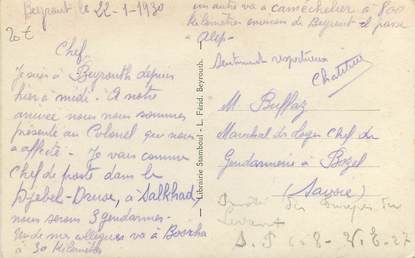 Beyrout le 22-1-1930
Chef,
Je suis à Beyrouth depuis
hier à midi. A notre
arrivée nous nous sommes
présenté au Colonel qui nous
a affecté. Je vais comme
Chef de poste dans le
Djebel-Druse, à Salkhad,
nous serons 3 gendarmes.
Un de mes collègues va à Bosrha
à 30 kilomètres
un autre va à
à 800
kilomètres environ de Beyrout et passe
à Alep.
Sentiment respectueux
Librairie Stamboul - L. Férid, Beyrouth.
M. Buffaz
Maréchal des Logis Chef de
Gendarmerie à Bozel
(Savoie)
des Troupes du
Levant